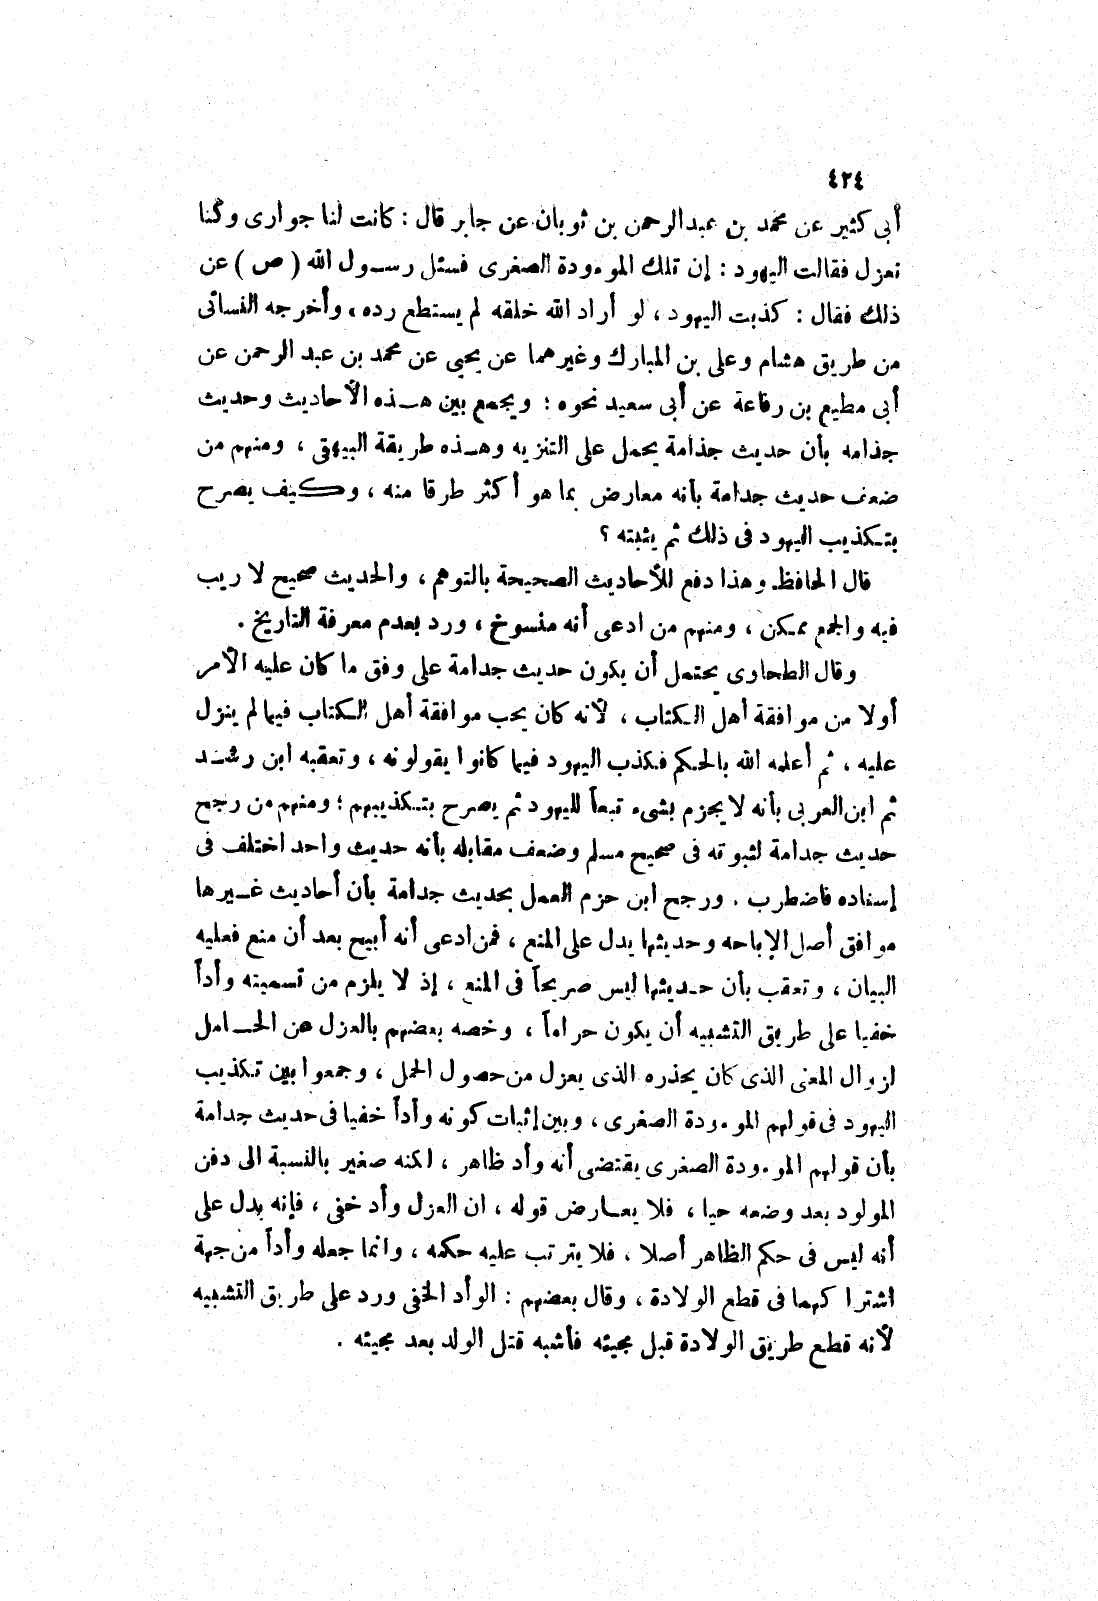 ٤٢٤
أبى كثير عن محمد بن عبدالرحمن بن ثوبان عن جابر قال : كانت لنا جوارى وكنا
نعزل فقالت اليهود : إن تلك الموءودة الصغرى فسئل رسول الله ( ص ) عن
ذلك فقال : كذبت اليهود ، لو أراد الله خلقه لم يستطع رده ، وأخرجه النسائى
من طريق هشام وعلى بن المبارك وغيرهما عن يحيى عن محمد بن عبد الرحمن عن
أبى مطيع بن رفاعة عن أبى سعيد نحوه ؛ ويجمع بين هذه الأحاديث وحديث
جذامه بأن حديث جذامة يحمل على التنزيه وهذه طريقة البيهقى ، ومنهم من
ضعف حديث جدامة بأنه معارض بما هو أكثر طرقا منه ، وكيف يصرح
بتكذيب اليهود فى ذلك ثم يثبته ؟
قال الحافظ وهذا دفع للأحاديث الصحيحة بالتوهم ، والحديث صحيح لا ريب
فيه والجمع ممكن ، ومنهم من ادعى أنه منسوخ ، ورد بعدم معرفة التاريخ .
وقال الطحاوى يحتمل أن يكون حديث جدامة على وفق ما كان عليه الأمر
أولا من موافقة أهل الكتاب ، لأنه كان يحب موافقة أهل الكتاب فيما لم ينزل
عليه ، ثم أعلمه الله بالحكم فكذب اليهود فيما كانوا يقولونه ، وتعقبه ابن رشد
ثم ابن العربى بأنه لا يجزم بشىء تبعاً لليهود ثم يصرح بتكذيبهم ؛ ومنهم من رجح
حديث جدامة لثبوته فى صحيح مسلم وضعف مقابله بأنه حديث واحد اختلف فى
إسناده فاضطرب . ورجح ابن حزم العمل بحديث جدامة بأن أحاديث غيرها
موافق أصل الإباحه وحديثها يدل على المنع ، فمن ادعى أنه أبيح بعد أن منع فعليه
البيان ، وتعقب بأن حديثها ليس صريحاً فى المنع ، إذ لا يلزم من تسميته وأداً
خفيا على طريق التشبيه أن يكون حراماً ، وخصه بعضهم بالعزل عن الحامل
لزوال المعنى الذى كان يحذره الذى يعزل من حصول الحمل ، وجمعوا بين تكذيب
اليهود فى قولهم الموءودة الصغرى ، وبين إثبات كونه وأداً خفيا فى حديث جدامة
بأن قولهم الموءودة الصغرى يقتضى أنه وأد ظاهر ، لكنه صغير بالنسبة الى دفن
المولود بعد وضعه حيا ، فلا يعارض قوله ، ان العزل وأد خفى ، فإنه يدل على
أنه ليس فى حكم الظاهر أصلا ، فلا يترتب عليه حكمه ، وانما جعله وأداً من جهة
اشتراكهما فى قطع الولادة ، وقال بعضهم : الوأد الخفى ورد على طريق التشبيه
لأنه قطع طريق الولادة قبل مجيئه فأشبه قتل الولد بعد مجيئه .